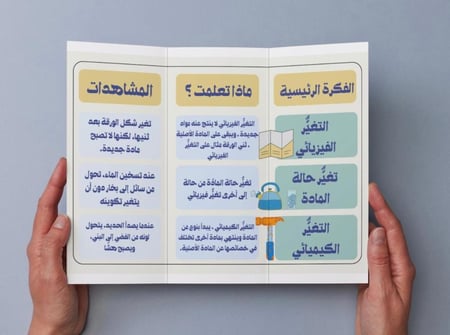 الفكرة الرئيسية
ماذا تعلمت ؟
المشاهدات
التغيُّر
الفيزيائي
التغيُّر الفيزيائي لا ينتج عنه مواد
جديدة ، ويبقى على المادة الأصلية
، ثني الورقة مثال على التغيُّر
الفيزيائي
تغير شكل الورقة بعد
ثنيها، لكنها لا تصبح
مادة جديدة.
تغيُّر حالة
المادة
تغيُّر حالة المادّة من حالة
إلى أخرى تغيُّر فيزيائي
عند تسخين الماء، تحول
من سائل إلى بخار دون أن
يتغير تكوينه
التغيُّر
الكيميائي
التغيُّر الكيميائي ، يبدأ بنوع من
المادة وينتهي بمادة أخرى تختلف
في خصائصها عن المادة الأصلية.
عندما يصدأ الحديد، يتحول
لونه من الفضي إلى البني،
ويصبح هشا